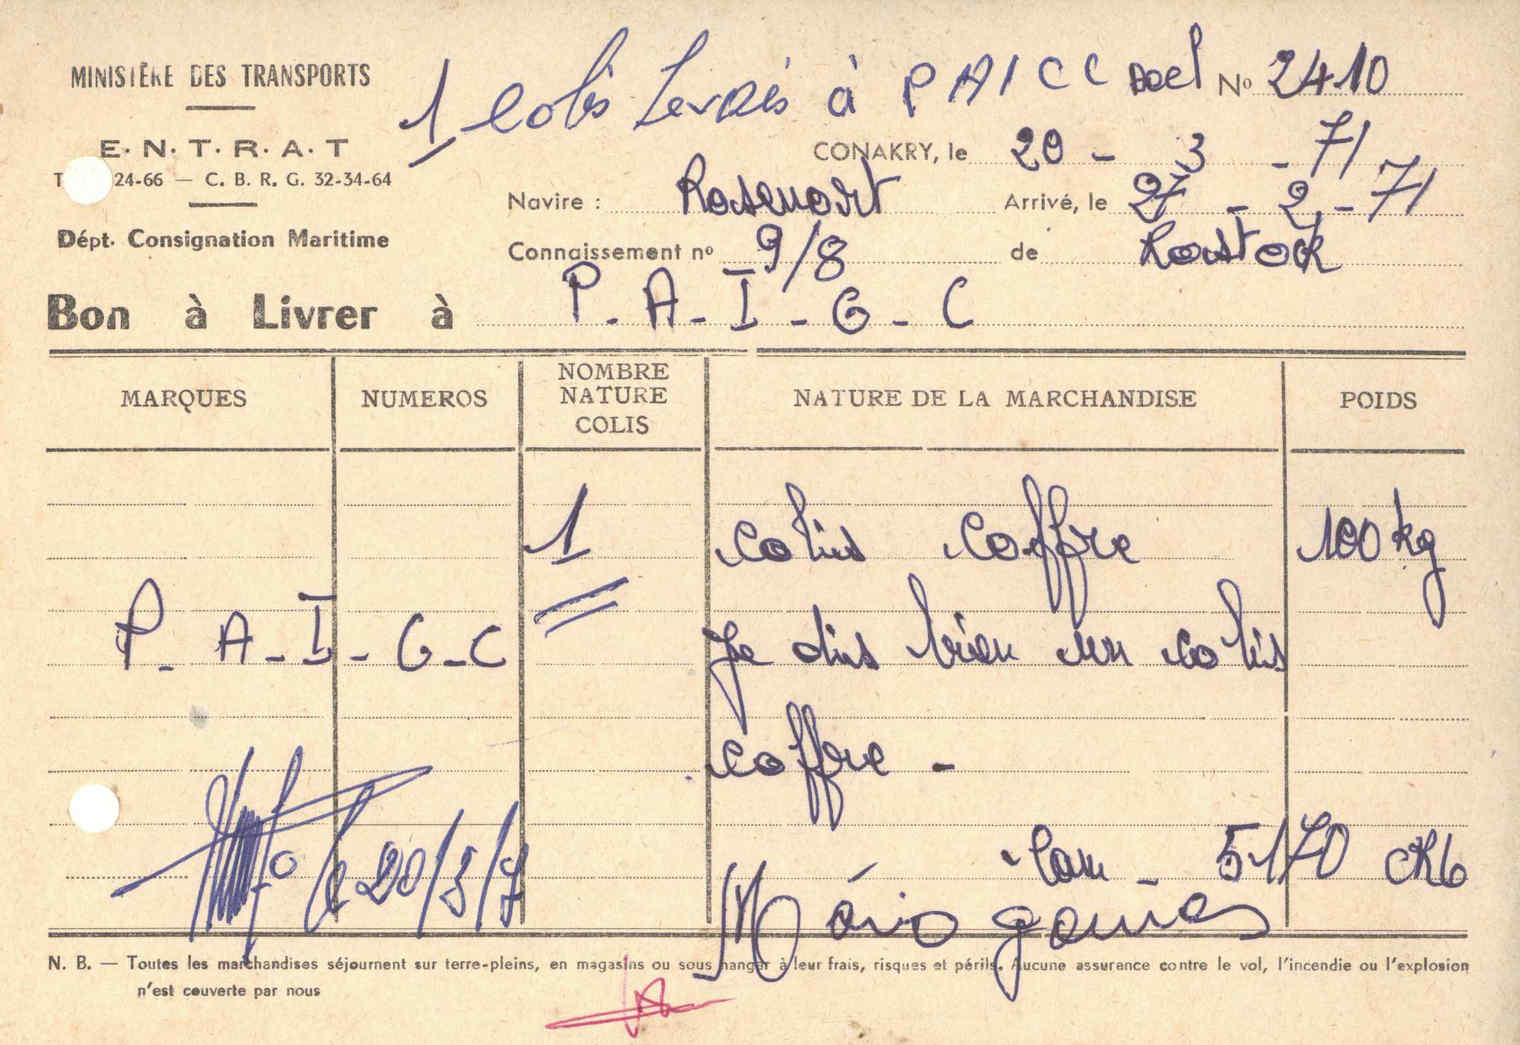 MINISTÈRE DES TRANSPORTS
E. N. T. R. A. T
24-66 — C. B. R. G. 32-34-64
Dépt. Consignation Maritime
1 colis à P A I C C
No 2410
CONAKRY, le 20 - 3 - 71
Navire : Rosenort Arrivé, le 27 - 2 - 71
Connaissement no 9/8 de Rostock
Bon à Livrer à P. A - I - G - C
MARQUES NUMEROS NOMBRE NATURE COLIS NATURE DE LA MARCHANDISE POIDS
1 colis coffre 100 kg
P. A - I - G - C Je dis bien un colis
coffre -
le 20/3/7 Cam - 5170 CK6
Mário gomes
N. B. — Toutes les marchandises séjournent sur terre-pleins, en magasins ou sous hangar à leur frais, risques et périls. Aucune assurance contre le vol, l'incendie ou l'explosion
n'est couverte par nous